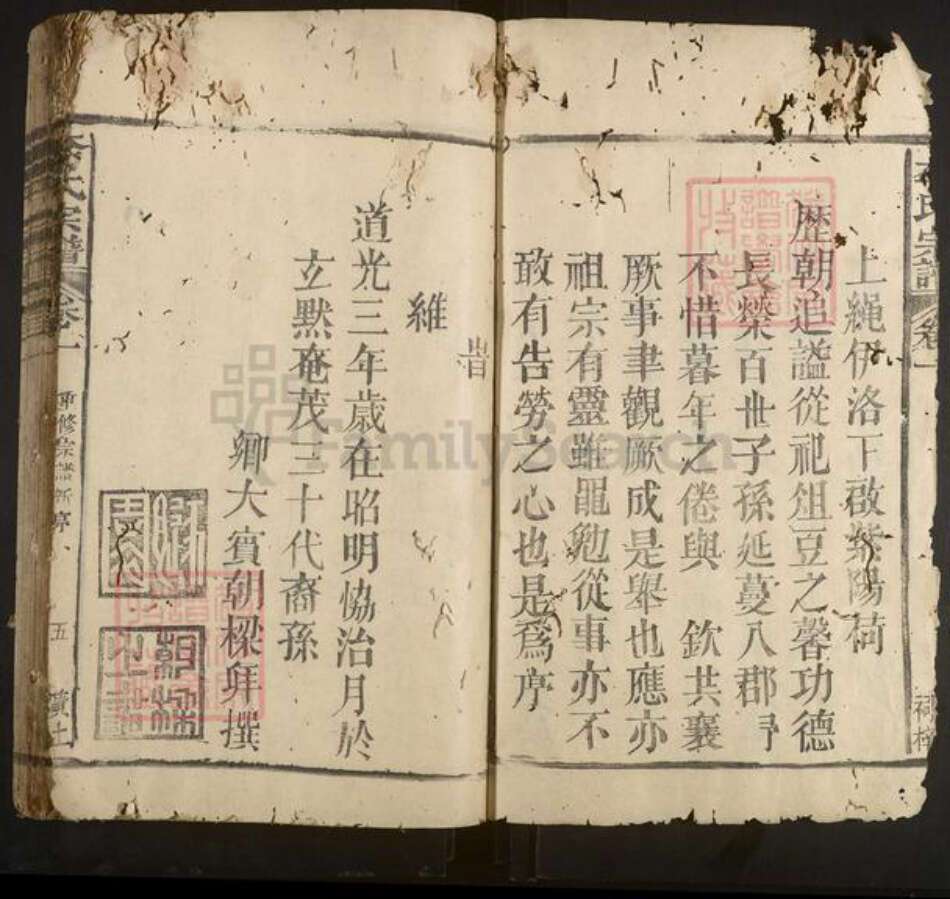 上繩伊洛下啟紫陽荷
歷朝追謚從祀俎豆之馨功德
長發百世子孫延蔓八郡予
不惜暮年之倦與 欽共襄
厥事聿觀厥成是舉也應亦
祖宗有靈雖黽勉從事亦不
敢有告勞之心也是爲序
旹
維
道光三年歲在昭明協洽月於
玄黙奄茂三十代裔孫
鄉大賓朝樑拜撰
氏宗譜 卷一 重修宗譜新序 五
氏宗譜 卷一
FamilySearch